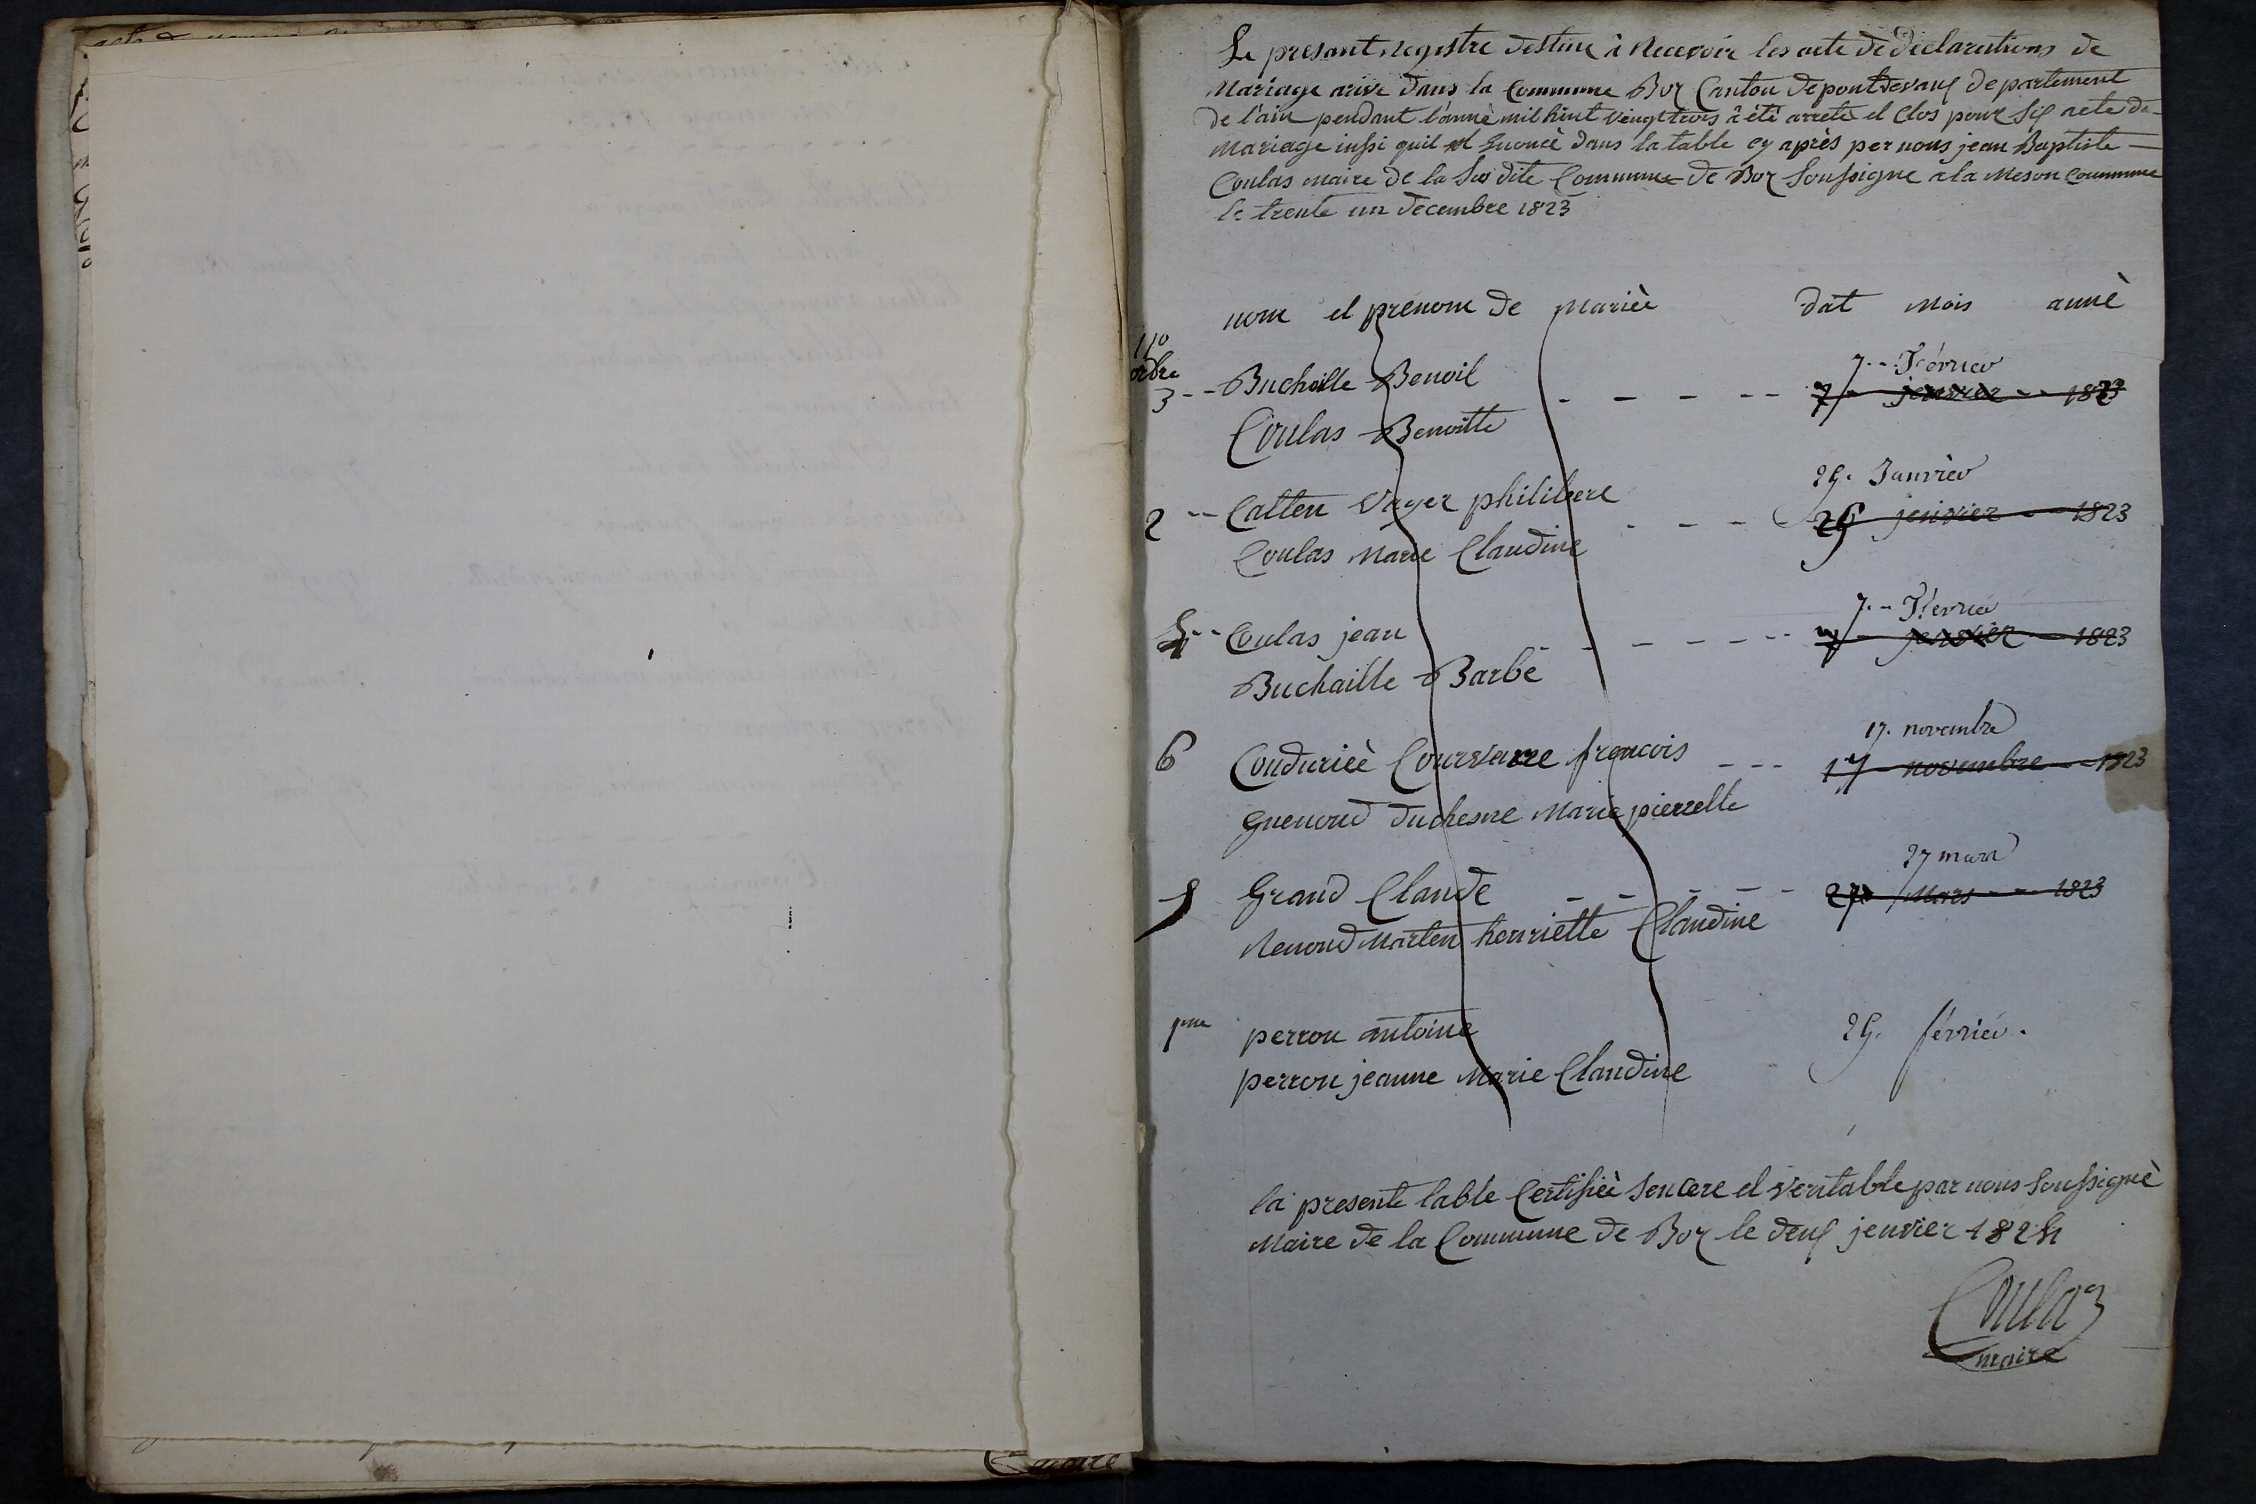 Le present Registre destine à Recevoir les acte de declarations de
Mariage arive dans la Commune Boz Canton de pontdevaux departement
de l'ain pendant l'annè mil huit veingt trois à été arreté et Clos pour Six acte de
Mariage inssi quil et Enoncè dans la table cy après per nous jean Baptiste
Coulas Maire de la Sus dite Commune de Boz Soussigne a la Meson Coummune
le trente un decembre 1823
nom et prenom de Mariée dat Mois annè
No
ordre
7 -- Février
3 -- Buchaille Benoit 7 jenvier 1823
Coulas Benoitte
29. Janvier
2 -- Catten Vayer philibere 29 jenvier 1823
Coulas Marie Claudine
7. -- Février
4 -- Coulas jean 7 jenvier 1823
Buchaille Barbe
17. novembre
6 Conduriéè Courvarre francois --- 17 novembre 1823
guenoud duchesne Marie pierrette
27 mars
5 Grand Claude 27 Mars 1823
Renoud Marten henriette Claudine
1me perron antoine 29. février.
perron jeanne Marie Claudine
la presente table Certifiéè Sencere et veritable par nous Soussignè
Maire de la Commune de Boz le deux jenvier 1824
Coulaz
maire
maire